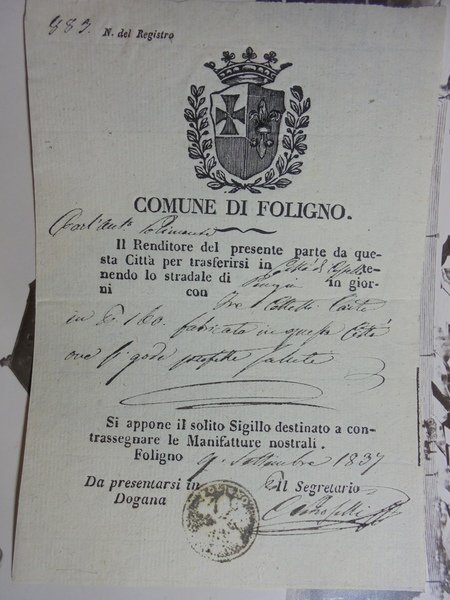 883. N. del Registro
COMUNE DI FOLIGNO.
Il Renditore del presente parte da que-
sta Città per trasferirsi in Città di Castello te-
nendo lo stradale di in gior-
ni con tre Colletti Carte
in 160. fabricata in questa Città
ove si gode perfetta salute
Si appone il solito Sigillo destinato a con-
trassegnare le Manifatture nostrali.
Foligno 9. Settembre 1837
Da presentarsi in Il Segretario
Dogana